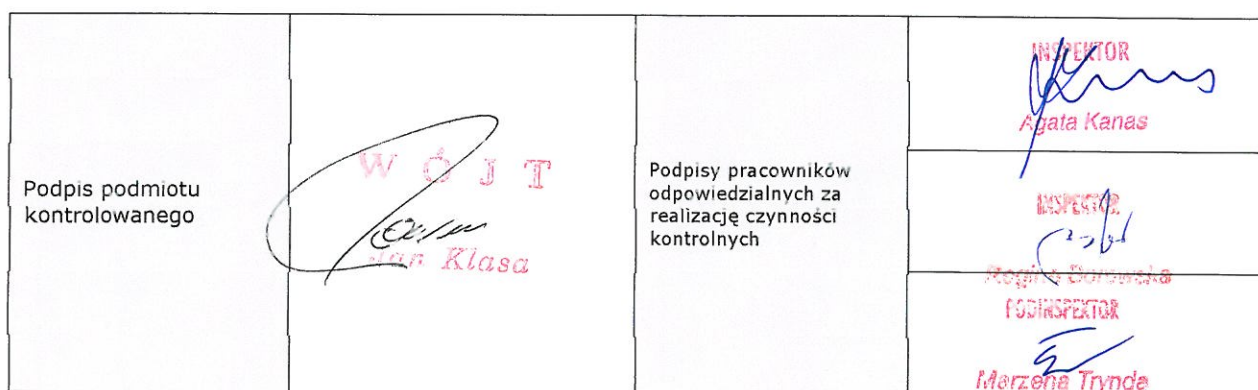 Podpis podmiotu
kontrolowanego
WÓJT
Jan Klasa
Podpisy pracowników
odpowiedzialnych za
realizację czynności
kontrolnych
INSPEKTOR
Agata Kanas
INSPEKTOR
Regina Borowska
PODINSPEKTOR
Marzena Trynda